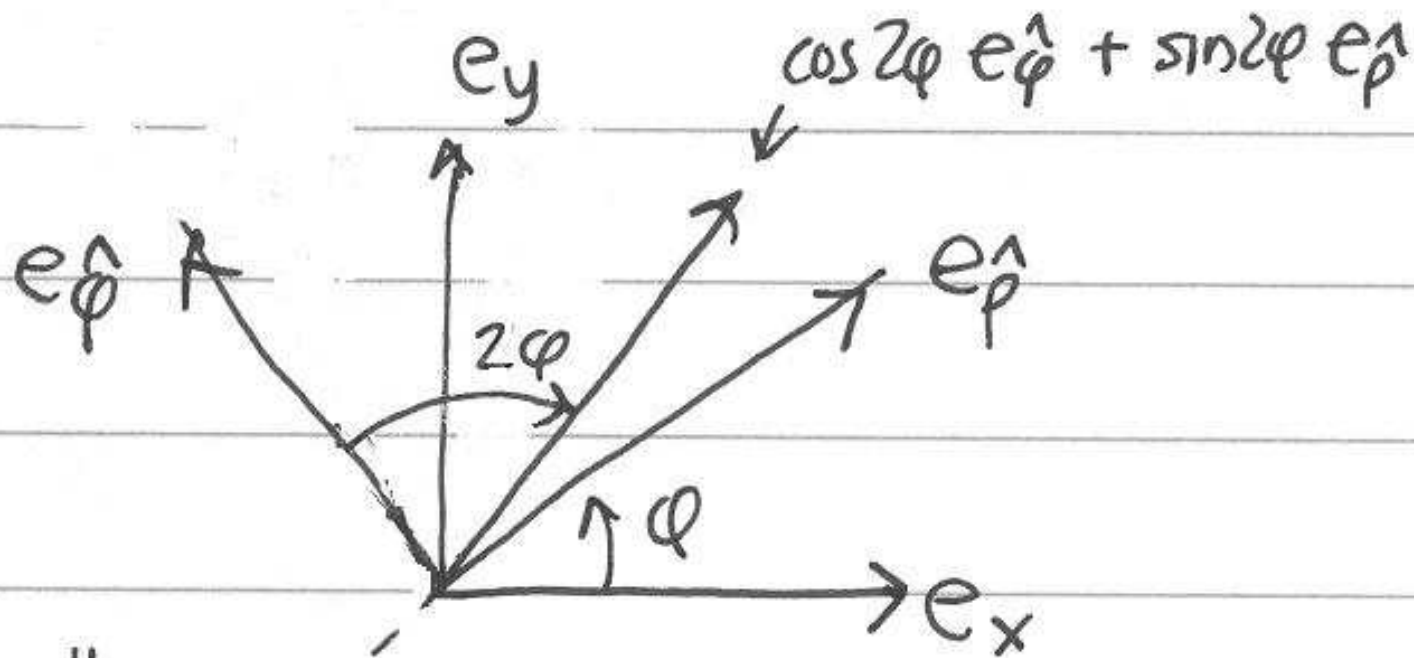 cos 2φ e_φ̂ + sin2φ e_ρ̂
e_y
e_φ̂
e_ρ̂
2φ
φ
e_x